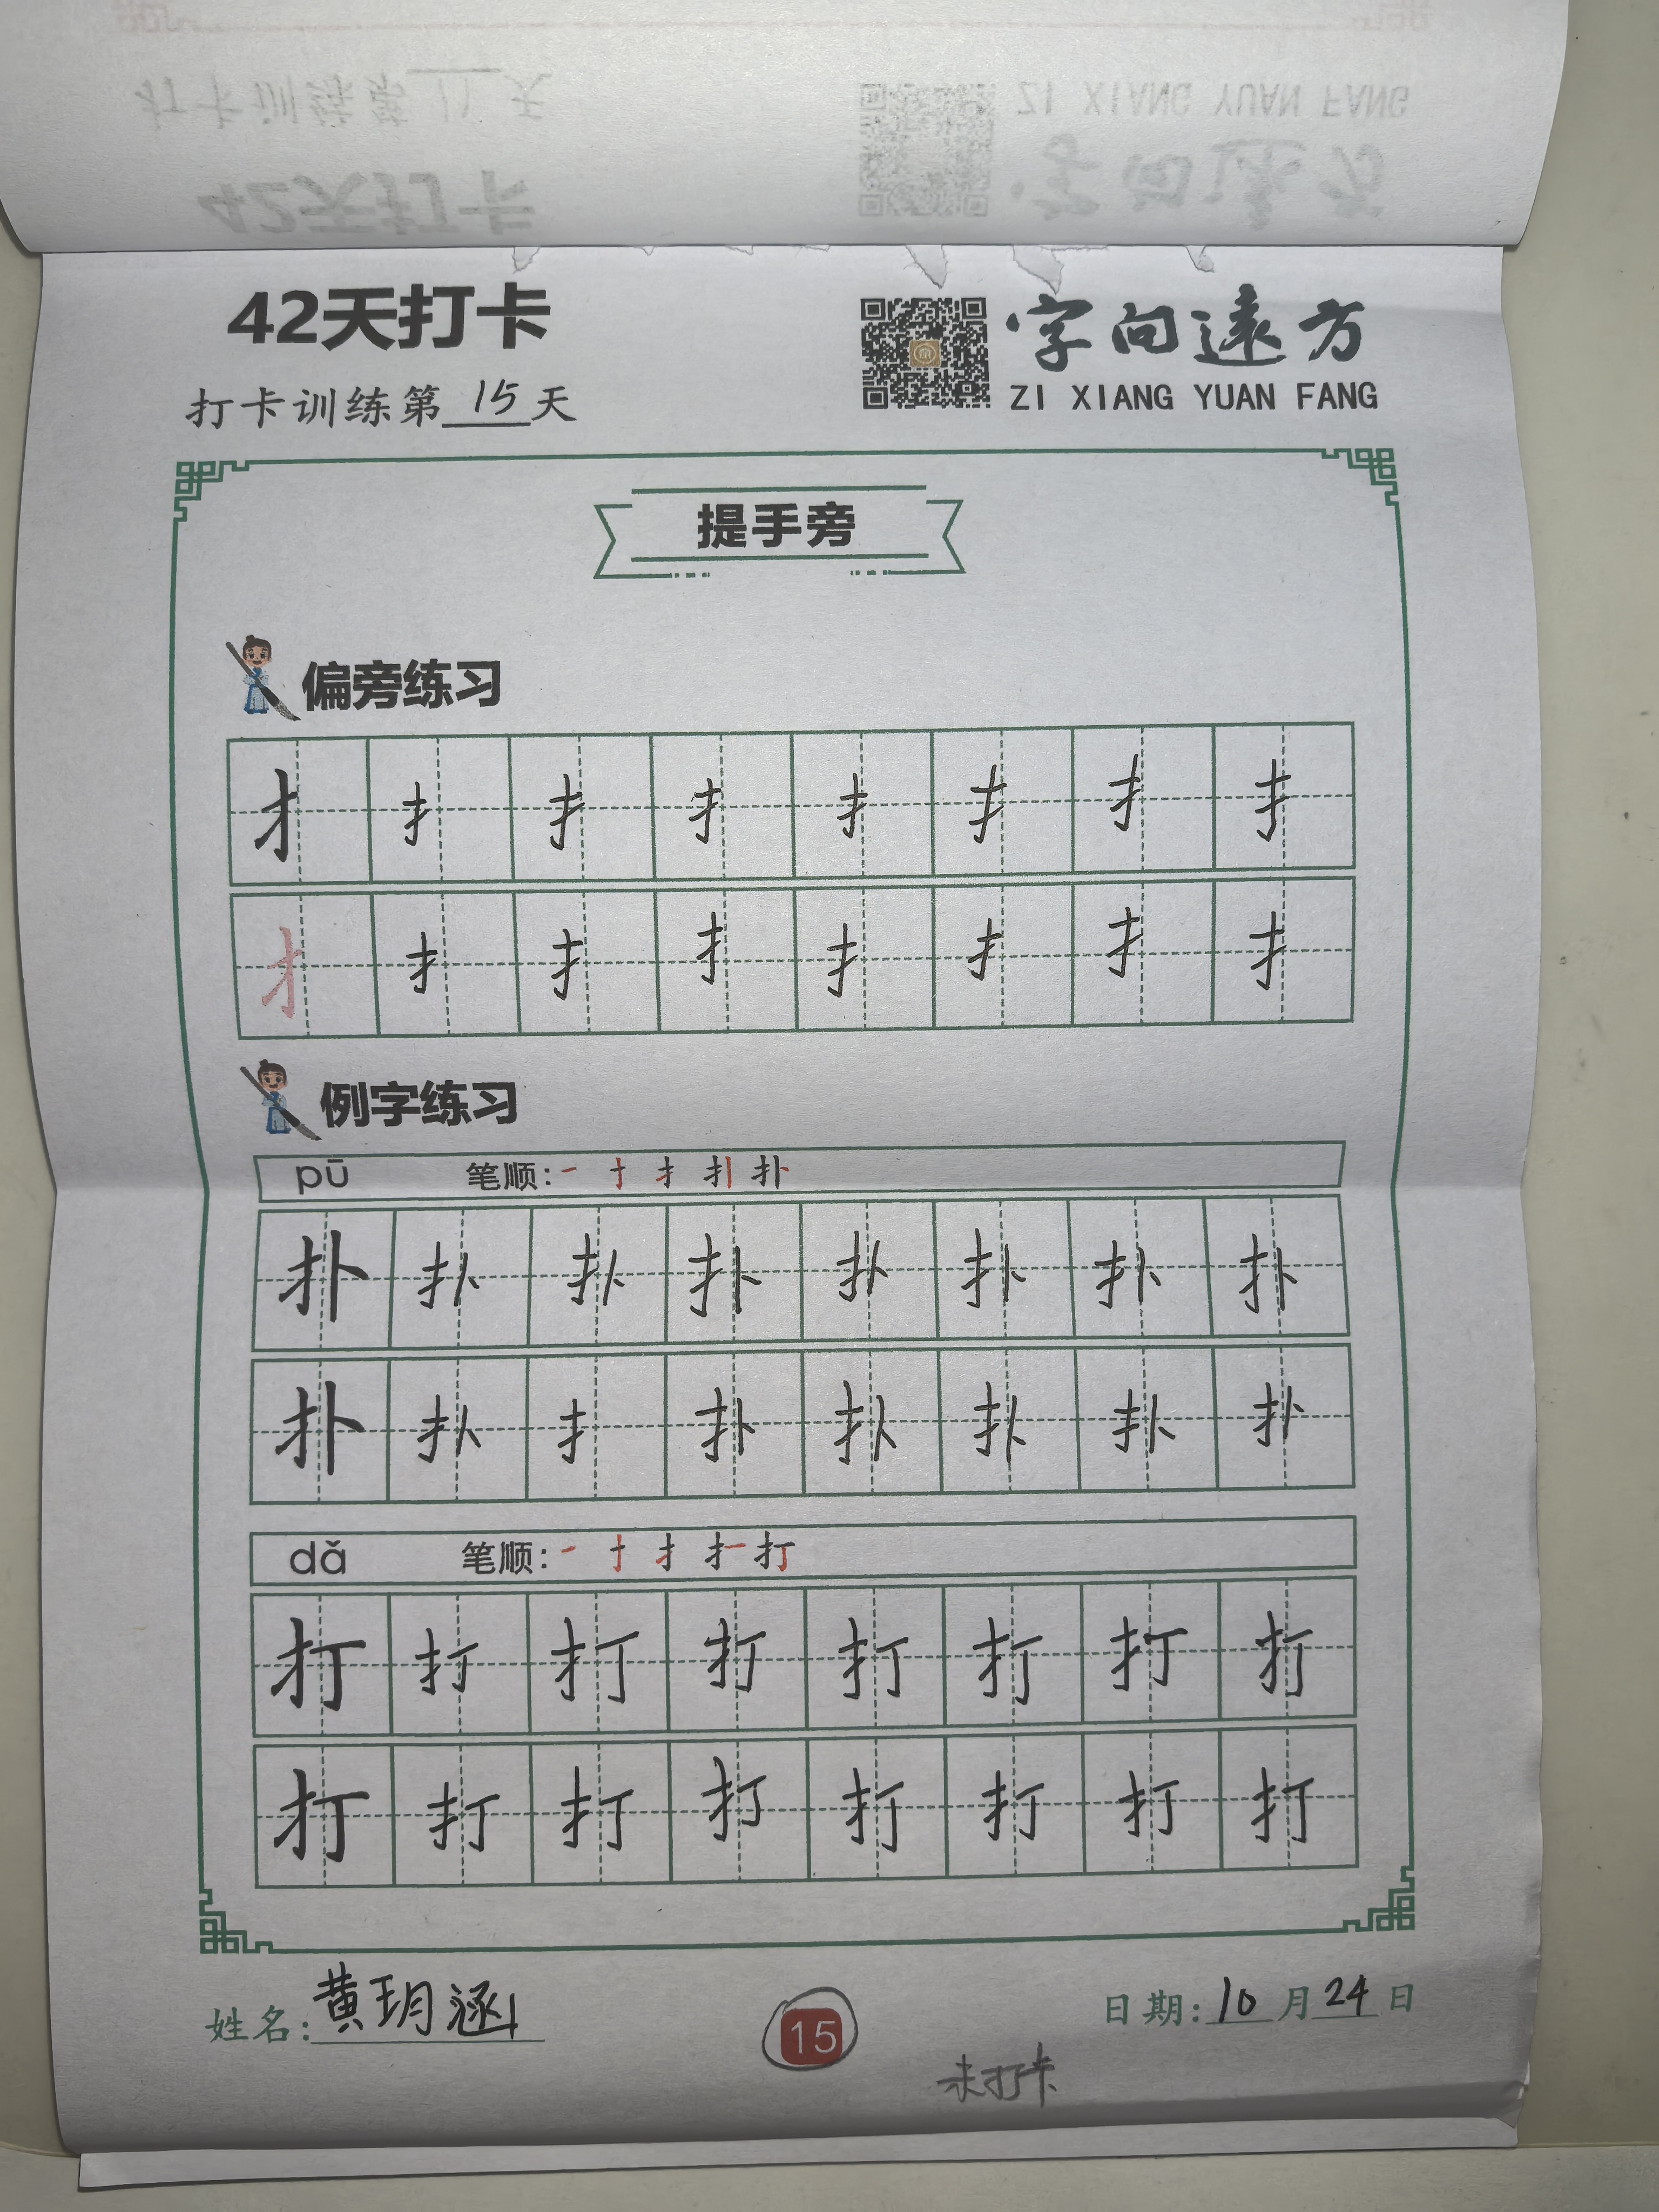 42天打卡
字向遠方
打卡训练第15天
ZI XIANG YUAN FANG
提手旁
偏旁练习
扌 扌 扌 扌 扌 扌 扌 扌
扌 扌 扌 扌 扌 扌 扌 扌
例字练习
pū 笔顺: 一 十 扌 扌丨 扑
扑 扑 扑 扑 扑 扑 扑 扑
扑 扑 扌 扑 扑 扑 扑 扑
dǎ 笔顺: 一 十 扌 扌一 打
打 打 打 打 打 打 打 打
打 打 打 打 打 打 打 打
姓名: 黄玥涵 15 日期: 10月24日
未打卡